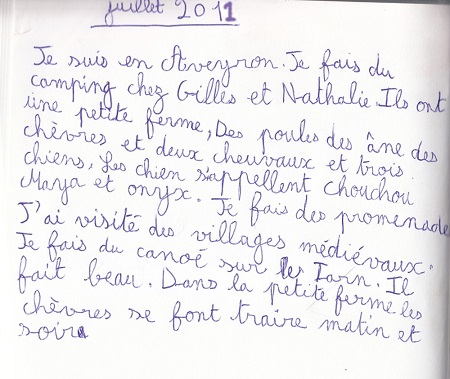 juillet 2011
Je suis en Aveyron. Je fais du
camping chez Gilles et Nathalie Ils ont
une petite ferme, Des poules des âne des
chèvres et deux cheuvaux et trois
chiens. Les chien s'appellent chouchou
Maya et onyx. Je fais des promenade
J'ai visité des villages médiévaux.
Je fais du canoé sur les Tarn. Il
fait beau. Dans la petite ferme les
chèvres se font traire matin et
soir